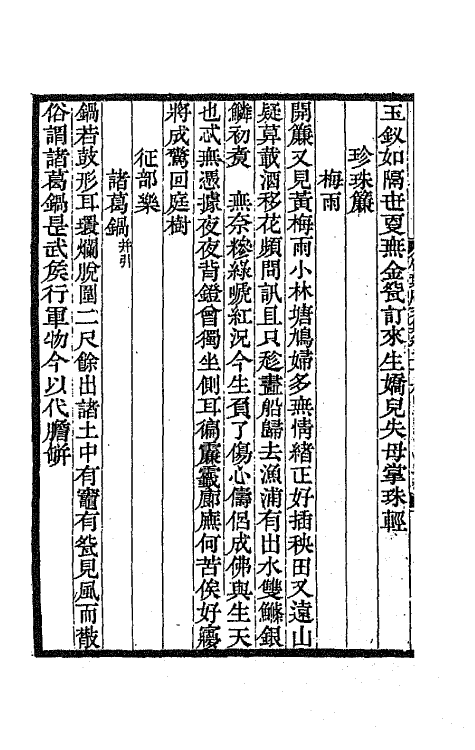 玉釵如隔世夏無金瓮訂來生嬌兒失母掌珠輕
珍珠簾
梅雨
開簾又見黃梅雨小林塘鳩婦多無情緒正好插秧田又遠山
疑莫載酒移花頻問訊且只趁畫船歸去漁浦有出水雙鱗銀
鱗初煑　無奈糝綠蜧紅況今生負了傷心儔侶成佛與生天
也忒無憑據夜夜背鐙曾獨坐側耳徧靡靈廊廡何苦俟好㝱
將成驚回庭樹
征部樂
諸葛鍋并引
鍋若鼓形耳環爛脫圍二尺餘出諸土中有竈有瓮見風而散
俗謂諸葛鍋是武矦行軍物今以代膽缾